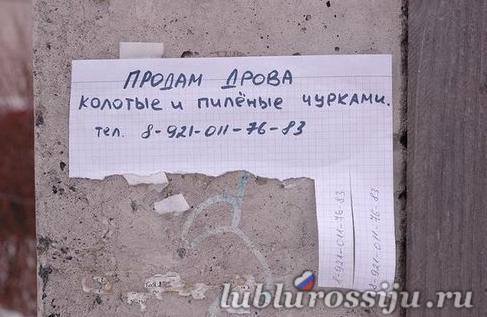 ПРОДАМ ДРОВА
КОЛОТЫЕ И ПИЛЁНЫЕ ЧУРКАМИ.
ТЕЛ. 8-921-011-76-83
8-921-011-76-83
8-921-011-76-83
lublurossiju.ru